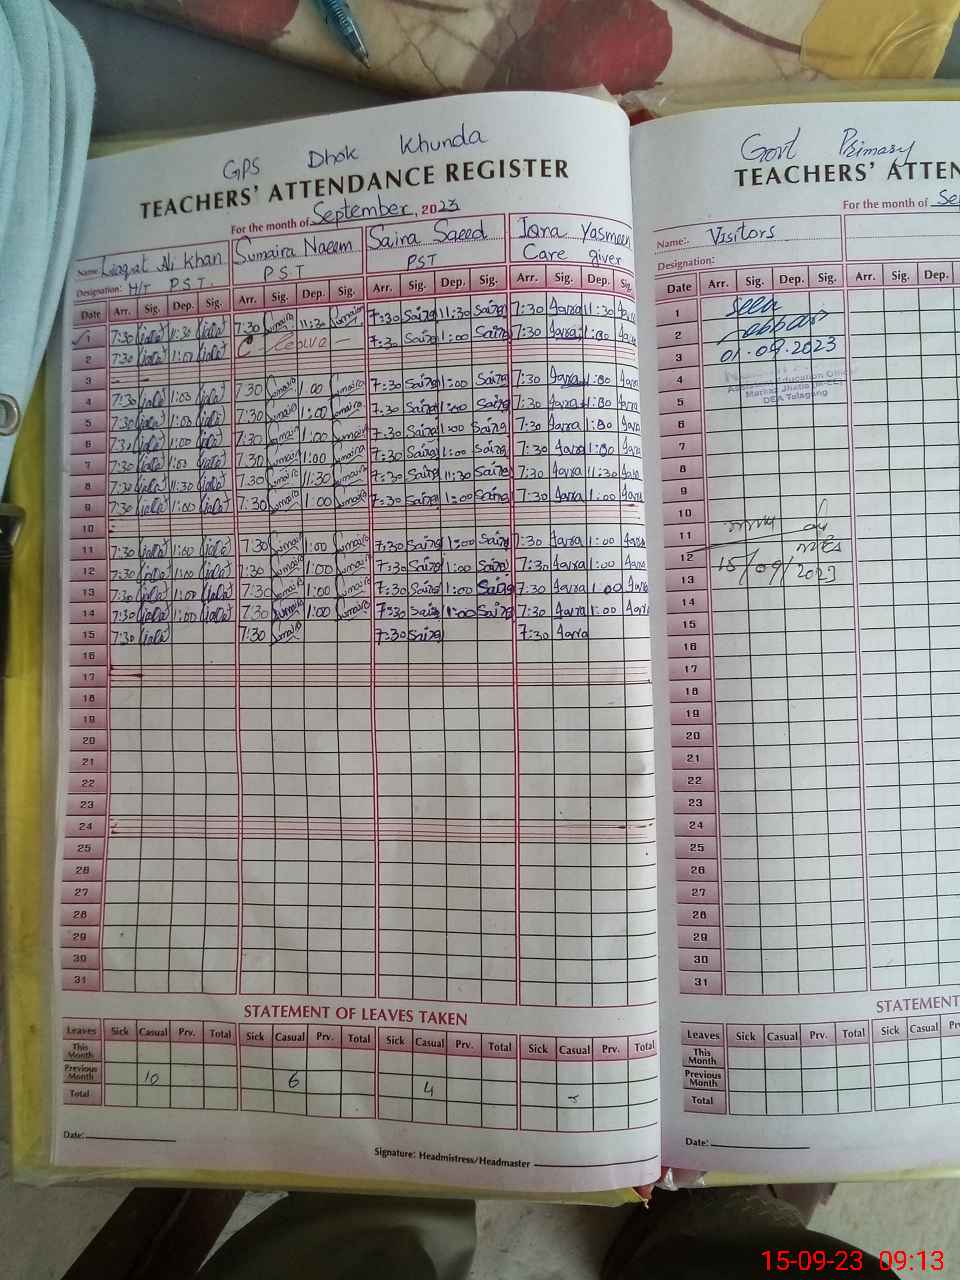 GPS Dhok Khunda
TEACHERS' ATTENDANCE REGISTER
For the month of September, 2023
Name Liaqat Ali Khan Sumaira Naeem Saira Saeed Iqra Yasmeen
Designation: H/T P.S.T. P S T PST Care giver
Date Arr. Sig. Dep. Sig. Arr. Sig. Dep. Sig. Arr. Sig. Dep. Sig. Arr. Sig. Dep. Sig.
1 7:30 11:30 7:30 Sumaira 11:30 Sumaira 7:30 Saira 11:30 Saira 7:30 Iqra 11:30 Iqra
2 7:30 1:00 C Leave — 7:30 Saira 1:00 Saira 7:30 Iqra 1:00 Iqra
3
4 7:30 1:00 7:30 Sumaira 1:00 Sumaira 7:30 Saira 1:00 Saira 7:30 Iqra 1:00 Iqra
5 7:30 1:00 7:30 Sumaira 1:00 Sumaira 7:30 Saira 1:00 Saira 7:30 Iqra 1:00 Iqra
6 7:30 1:00 7:30 Sumaira 1:00 Sumaira 7:30 Saira 1:00 Saira 7:30 Iqra 1:00 Iqra
7 7:30 1:00 7:30 Sumaira 1:00 Sumaira 7:30 Saira 1:00 Saira 7:30 Iqra 1:00 Iqra
8 7:30 11:30 7:30 Sumaira 11:30 Sumaira 7:30 Saira 11:30 Saira 7:30 Iqra 11:30 Iqra
9 7:30 1:00 7:30 Sumaira 1:00 Sumaira 7:30 Saira 1:00 Saira 7:30 Iqra 1:00 Iqra
10
11 7:30 1:00 7:30 Sumaira 1:00 Sumaira 7:30 Saira 1:00 Saira 7:30 Iqra 1:00 Iqra
12 7:30 1:00 7:30 Sumaira 1:00 Sumaira 7:30 Saira 1:00 Saira 7:30 Iqra 1:00 Iqra
13 7:30 1:00 7:30 Sumaira 1:00 Sumaira 7:30 Saira 1:00 Saira 7:30 Iqra 1:00 Iqra
14 7:30 1:00 7:30 Sumaira 1:00 Sumaira 7:30 Saira 1:00 Saira 7:30 Iqra 1:00 Iqra
15 7:30 7:30 Sumaira 7:30 Saira 7:30 Iqra
16
17
18
19
20
21
22
23
24
25
26
27
28
29
30
31
STATEMENT OF LEAVES TAKEN
Leaves Sick Casual Prv. Total Sick Casual Prv. Total Sick Casual Prv. Total Sick Casual Prv. Total
This Month
Previous Month 10 6 4
Total
Date:
Signature: Headmistress/Headmaster
Govt Primary
TEACHERS' ATTEN
For the month of Se
Name:. Visitors
Designation:
Date Arr. Sig. Dep. Sig. Arr. Sig. Dep.
1 Seen
2
3 01.09.2023
4 Assistant Education Officer
5 DEA Talagang
6
7
8
9
10
11
12 15/09/2023
13
14
15
16
17
18
19
20
21
22
23
24
25
26
27
28
29
30
31
STATEMENT
Leaves Sick Casual Prv. Total Sick Casual Prv.
This Month
Previous Month
Total
Date:
15-09-23 09:13